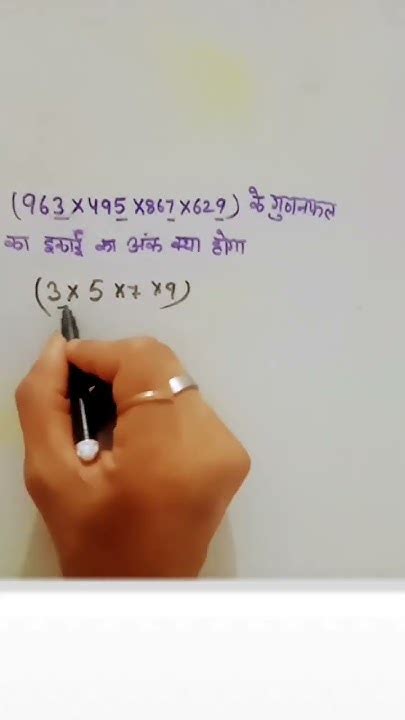 (963 × 495 × 867 × 629) के गुणनफल
का इकाई का अंक क्या होगा
(3 × 5 × 7 × 9)